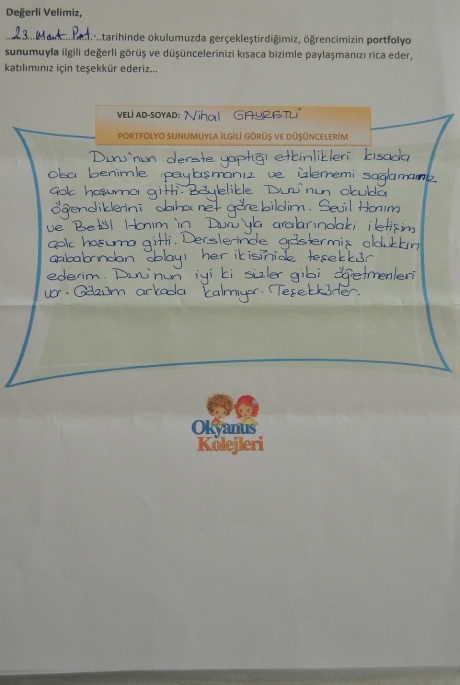 Değerli Velimiz,
23 Mart Pzt. tarihinde okulumuzda gerçekleştirdiğimiz, öğrencimizin portfolyo
sunumuyla ilgili değerli görüş ve düşüncelerinizi kısaca bizimle paylaşmanızı rica eder,
katılımınız için teşekkür ederiz...
VELİ AD-SOYAD: Nihal GAYRETLİ
PORTFOLYO SUNUMUYLA İLGİLİ GÖRÜŞ VE DÜŞÜNCELERİM
Duru'nun derste yaptığı etkinlikleri kısada
olsa benimle paylaşmanız ve izlememi sağlamanız
çok hoşuma gitti. Böylelikle Duru'nun okulda
öğrendiklerini daha net görebildim. Sevil Hanım
ve Betül Hanım'ın Duru'yla aralarındaki iletişim
çok hoşuma gitti. Derslerinde göstermiş oldukları
çabalarından dolayı her ikisinide teşekkür
ederim. Duru'nun iyi ki sizler gibi öğretmenleri
var. Gözüm arkada kalmıyor. Teşekkürler.
Okyanus
Kolejleri